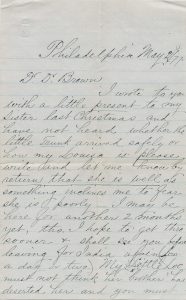 Philadelphia May
Brown
I wrote to you
with a little present to my
sister last Christmas and
have not heard whether the
little trunk arrived safely or
how my is please
write and let me know by
return that she is well as
something inclines me to fear
she is poorly I may be
here for another 2 months
yet, tho I hope to get thro
sooner & shall see you before
leaving for
a day or two. My little
must not think her brother has
deserted her and you must